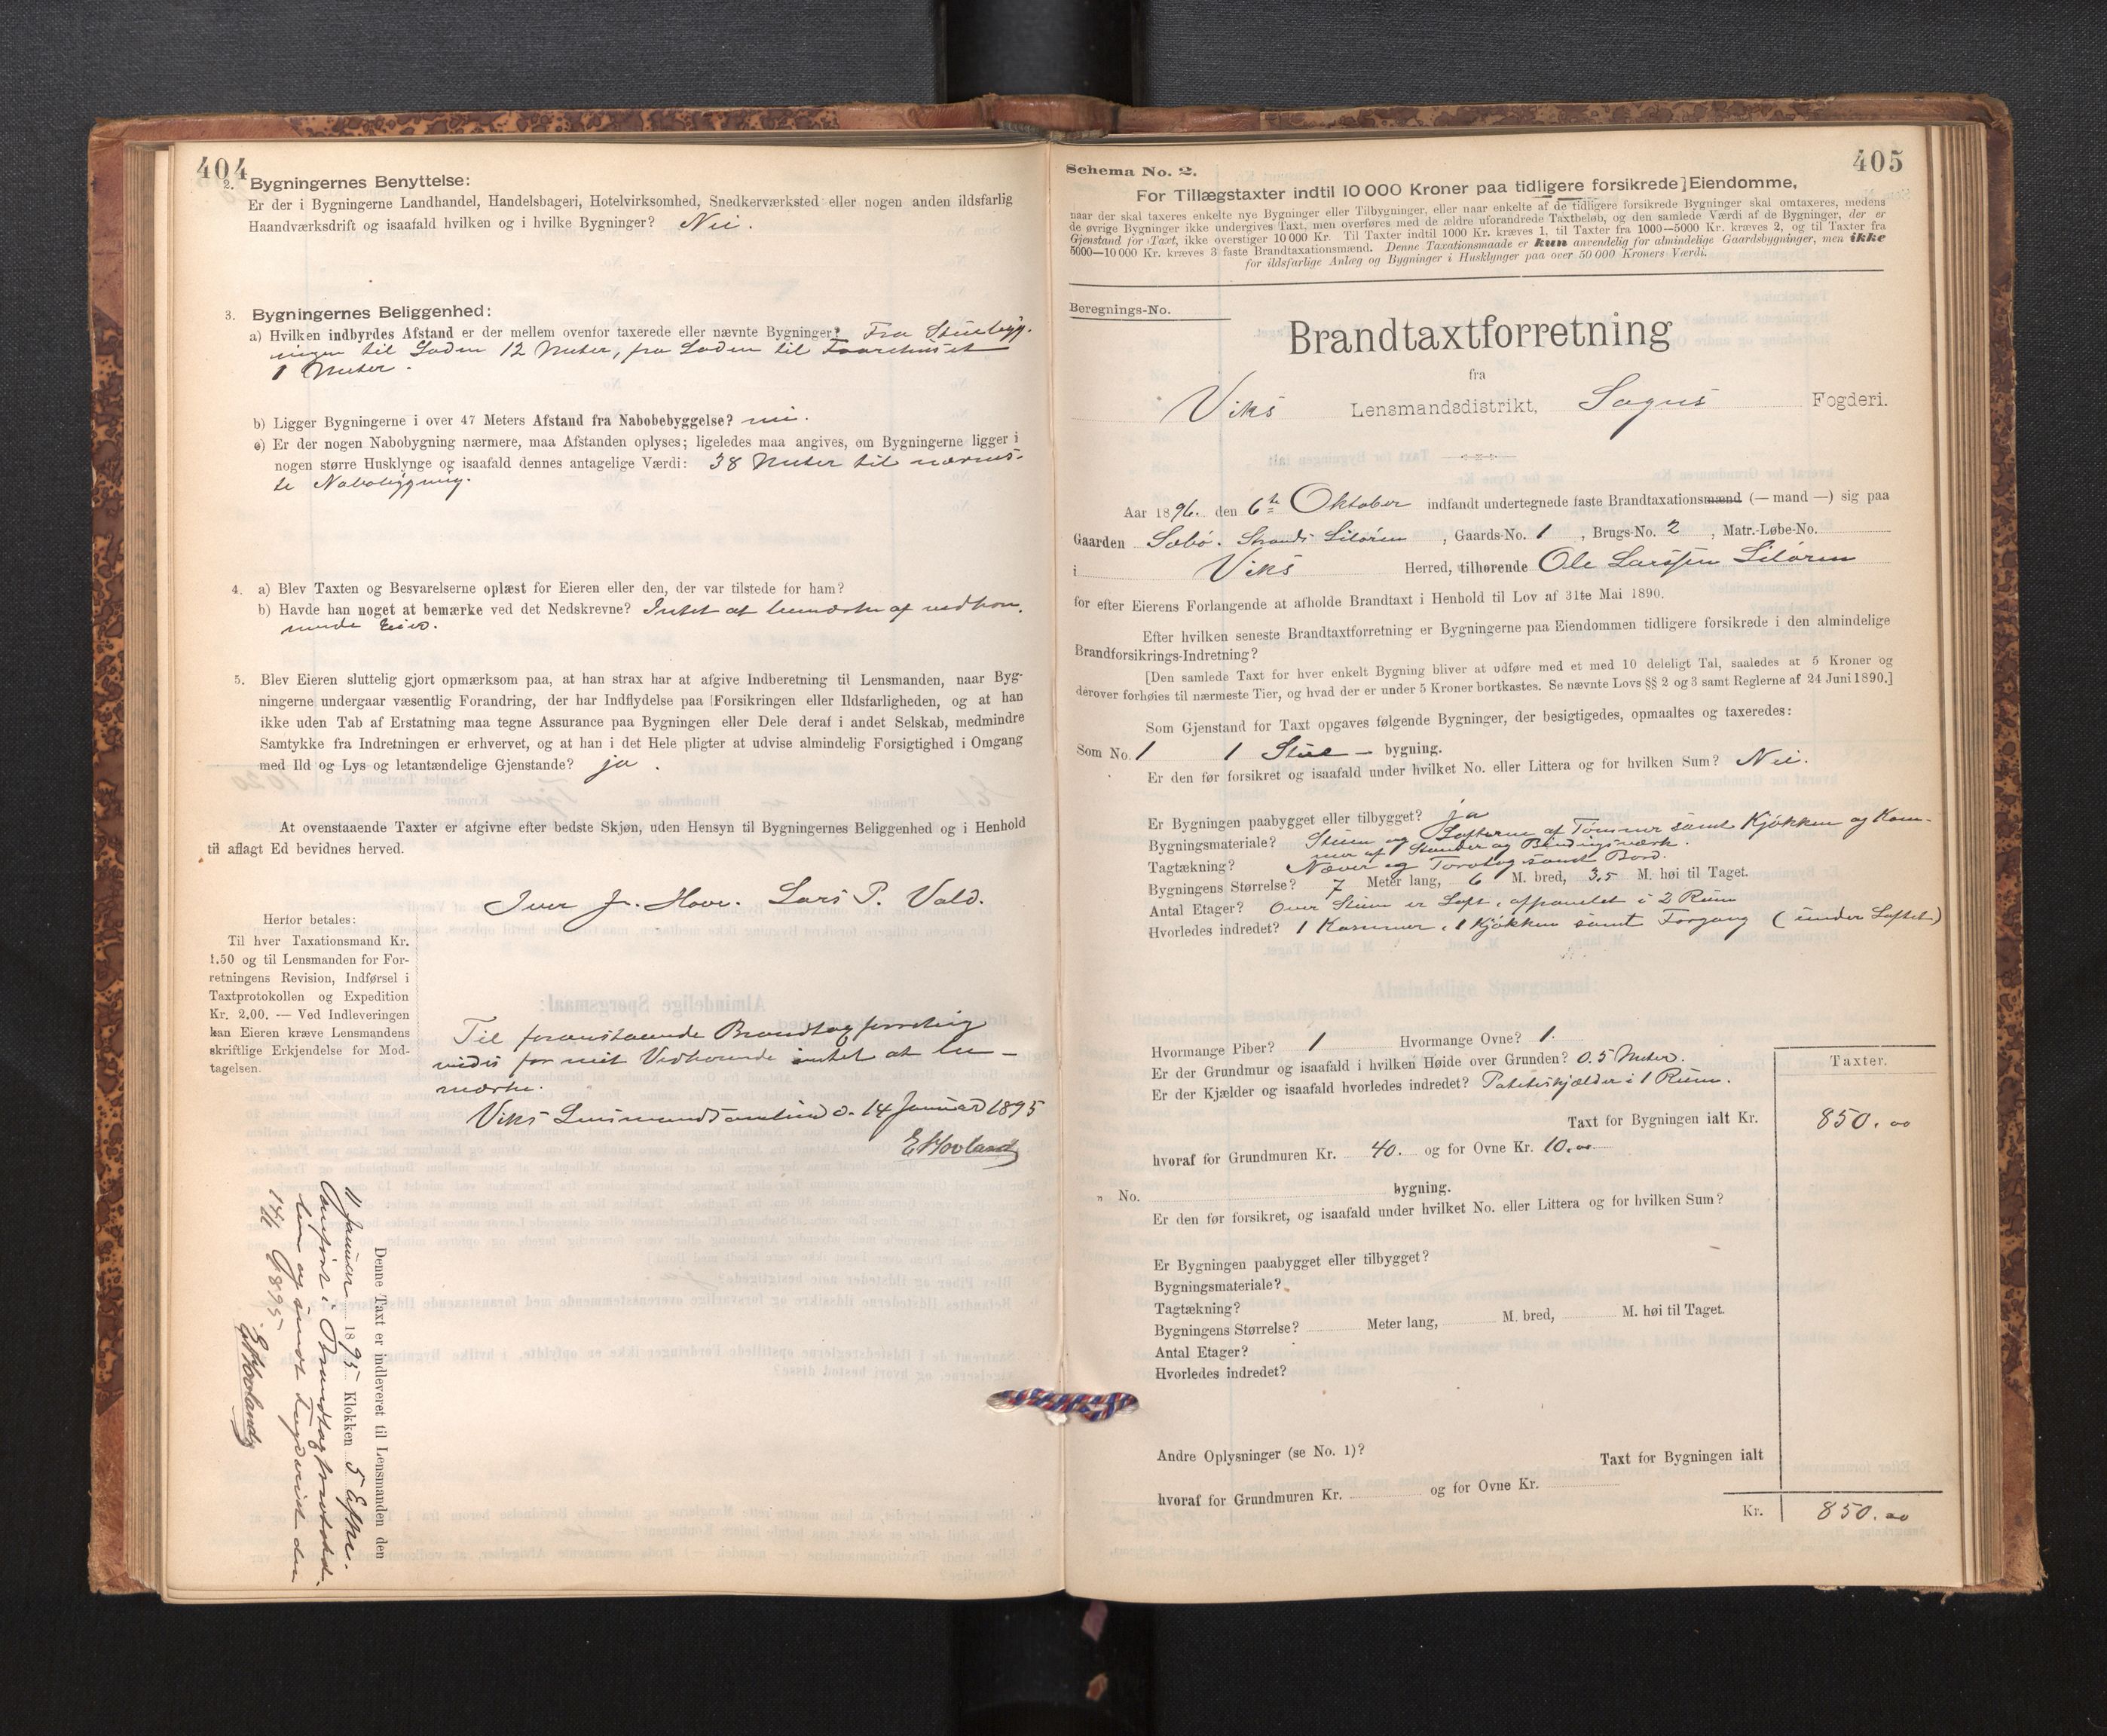 404
2. Bygningernes Benyttelse:
Er der i Bygningerne Landhandel, Handelsbageri, Hotelvirksomhed, Snedkerværksted eller nogen anden ildsfarlig
Haandværksdrift og isaafald hvilken og i hvilke Bygninger? Nei.
3. Bygningernes Beliggenhed:
a) Hvilken indbyrdes Afstand er der mellem ovenfor taxerede eller nævnte Bygninger? Fra Stuebyg-
ningen til Laden 12 Meter, fra Laden til Faarehuset
1 Meter.
b) Ligger Bygningerne i over 47 Meters Afstand fra Nabobebyggelse? nei.
c) Er der nogen Nabobygning nærmere, maa Afstanden oplyses; ligeledes maa angives, om Bygningerne ligger i
nogen større Husklynge og isaafald dennes antagelige Værdi: 38 Meter til nærmes-
te Nabobygning.
4. a) Blev Taxten og Besvarelserne oplæst for Eieren eller den, der var tilstede for ham?
b) Havde han noget at bemærke ved det Nedskrevne? Intet at bemærke af vedkom-
mende Eier.
5. Blev Eieren sluttelig gjort opmærksom paa, at han strax har at afgive Indberetning til Lensmanden, naar Byg-
ningerne undergaar væsentlig Forandring, der har Indflydelse paa Forsikringen eller Ildsfarligheden, og at han
ikke uden Tab af Erstatning maa tegne Assurance paa Bygningen eller Dele deraf i andet Selskab, medmindre
Samtykke fra Indretningen er erhvervet, og at han i det Hele pligter at udvise almindelig Forsigtighed i Omgang
med Ild og Lys og letantændelige Gjenstande? ja.
At ovenstaaende Taxter er afgivne efter bedste Skjøn, uden Hensyn til Bygningernes Beliggenhed og i Henhold
til aflagt Ed bevidnes herved.
Iver J. Hove. Lars P. Vold.
Herfor betales:
Til hver Taxationsmand Kr.
1.50 og til Lensmanden for For-
retningens Revision, Indførsel i
Taxtprotokollen og Expedition
Kr. 2.00. — Ved Indleveringen
kan Eieren kræve Lensmandens
skriftlige Erkjendelse for Mod-
tagelsen.
Til foranstaaende Brandtaxforretning
vides for mit Vedkommende intet at be-
mærke.
Viks Lensmandsombud d. 14 Januar 1895
E Hovland
Denne Taxt er indleveret til Lensmanden den
11 Januar 1895 Klokken 5 Efm.
Confört i Brandtaxprotokol-
len og sendt Fogderiet den
14/1 1895
E Hovland
405
Schema No. 2.
For Tillægstaxter indtil 10 000 Kroner paa tidligere forsikrede Eiendomme,
naar der skal taxeres enkelte nye Bygninger eller Tilbygninger, eller naar enkelte af de tidligere forsikrede Bygninger skal omtaxeres, medens
de øvrige Bygninger ikke undergives Taxt, men overføres med de ældre uforandrede Taxtbeløb, og den samlede Værdi af de Bygninger, der er
Gjenstand for Taxt, ikke overstiger 10 000 Kr. Til Taxter indtil 1000 Kr. kræves 1, til Taxter fra 1000—5000 Kr. kræves 2, og til Taxter fra
5000—10 000 Kr. kræves 3 faste Brandtaxationsmænd. Denne Taxationsmaade er kun anvendelig for almindelige Gaardsbygninger, men ikke
for ildsfarlige Anlæg og Bygninger i Husklynger paa over 50 000 Kroners Værdi.
Beregnings-No.
Brandtaxtforretning
fra
Viks Lensmandsdistrikt, Sogns Fogderi.
Aar 1896. den 6te Oktober indfandt undertegnede faste Brandtaxationsmænd (— mand —) sig paa
Gaarden Sæbö. Strands Sitören, Gaards-No. 1, Brugs-No. 2, Matr.-Løbe-No.
i Viks Herred, tilhørende Ole Larssen Sitören
for efter Eierens Forlangende at afholde Brandtaxt i Henhold til Lov af 31te Mai 1890.
Efter hvilken seneste Brandtaxtforretning er Bygningerne paa Eiendommen tidligere forsikrede i den almindelige
Brandforsikrings-Indretning?
[Den samlede Taxt for hver enkelt Bygning bliver at udføre med et med 10 deleligt Tal, saaledes at 5 Kroner og
derover forhøies til nærmeste Tier, og hvad der er under 5 Kroner bortkastes. Se nævnte Lovs §§ 2 og 3 samt Reglerne af 24 Juni 1890.]
Som Gjenstand for Taxt opgaves følgende Bygninger, der besigtigedes, opmaaltes og taxeredes:
Som No. 1 1 Stue — bygning.
Er den før forsikret og isaafald under hvilket No. eller Littera og for hvilken Sum? Nei.
Er Bygningen paabygget eller tilbygget? ja
Bygningsmateriale? Stuen og Lofterne af Tømmer samt Kjøkken og Kam-
mer af Stender og Bindingsværk.
Tagtækning? Næver og Torvtag samt Bord.
Bygningens Størrelse? 7 Meter lang, 6 M. bred, 3,5 M. høi til Taget.
Antal Etager? Over Stuen er Loft, afpanelet i 2 Rum
Hvorledes indredet? 1 Kammer, 1 Kjøkken samt Forgang (under Loftet)
Hvormange Piber? 1 Hvormange Ovne? 1.
Er der Grundmur og isaafald i hvilken Høide over Grunden? 0.5 Meter.
Er der Kjælder og isaafald hvorledes indredet? Potetskjælder i 1 Rum.
Taxter.
Taxt for Bygningen ialt Kr. 850.00
hvoraf for Grundmuren Kr. 40. og for Ovne Kr. 10.00
" No. bygning.
Er den før forsikret, og isaafald under hvilket No. eller Littera og for hvilken Sum?
Er Bygningen paabygget eller tilbygget?
Bygningsmateriale?
Tagtækning?
Bygningens Størrelse? Meter lang, M. bred, M. høi til Taget.
Antal Etager?
Hvorledes indredet?
Andre Oplysninger (se No. 1)? Taxt for Bygningen ialt
hvoraf for Grundmuren Kr. og for Ovne Kr.
Kr. 850.00